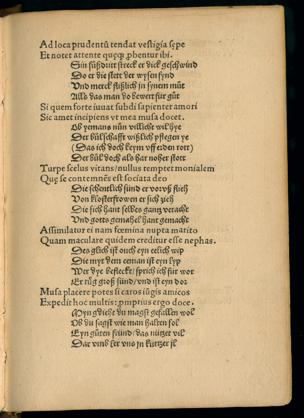 Ad loca prudentũ tendat vestigia sępe
Et notet attente quęqꝫ phentur ibi.
Sin fůßdritt streck er dick geschwind
Do er die stett der wysen fynd
Vnd merck flißlich in synem můt
Alls das man do bewert für gůt
Si quem forte iuuat subdi sapienter amori
Sic amet incipiens vt mea musa docet.
Ob yemans nůn villicht wil hye
Der bůlschafft wißlich pflegen ye
(Das ich doch keym vff eiden rott)
Der bůl doch als har noher stott
Turpe scelus vitans / nullus temptet monialem
Quę se contemnẽs est sociata deo
Die schentlich sünd er vorvß flieh
Von klosterfrowen er sich zieh
Die sich hant selbes gantz veracht
Vnd gotts gemahel hant gemacht
Assimilatur ei nam fœmina nupta marito
Quam maculare quidem creditur esse nephas.
Des glich ist ouch eyn eelich wip
Die myt dem eeman ist eyn lyp
Wer dye befleckt / sprich ich für wor
Er tůg groß sünd / vnd ist eyn dor
Musa placere potes si caros iũgis amicos
Expedit hoc multis: pmptius ergo doce.
Myn gdicht du magst gefallen wol
Ob du sagst wie man halten sol
Eyn gůten fründ / das nützet vil
Dar vmb ler vns in kürtzer jl